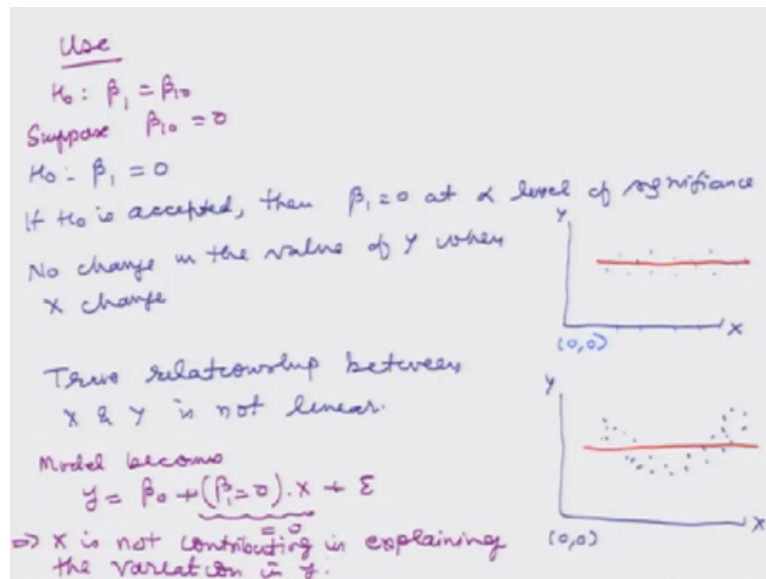 Use
H₀: β₁ = β₁₀
Suppose β₁₀ = 0
H₀: β₁ = 0
If H₀ is accepted, then β₁ = 0 at α level of signifiance
No change in the value of Y when
X change
Y
X
(0,0)
True relationship between
X & Y is not linear.
Y
X
(0,0)
Model become
y = β₀ + (β₁=0).X + ε
= 0
⇒ X is not contributing in explaining
the variation in y.